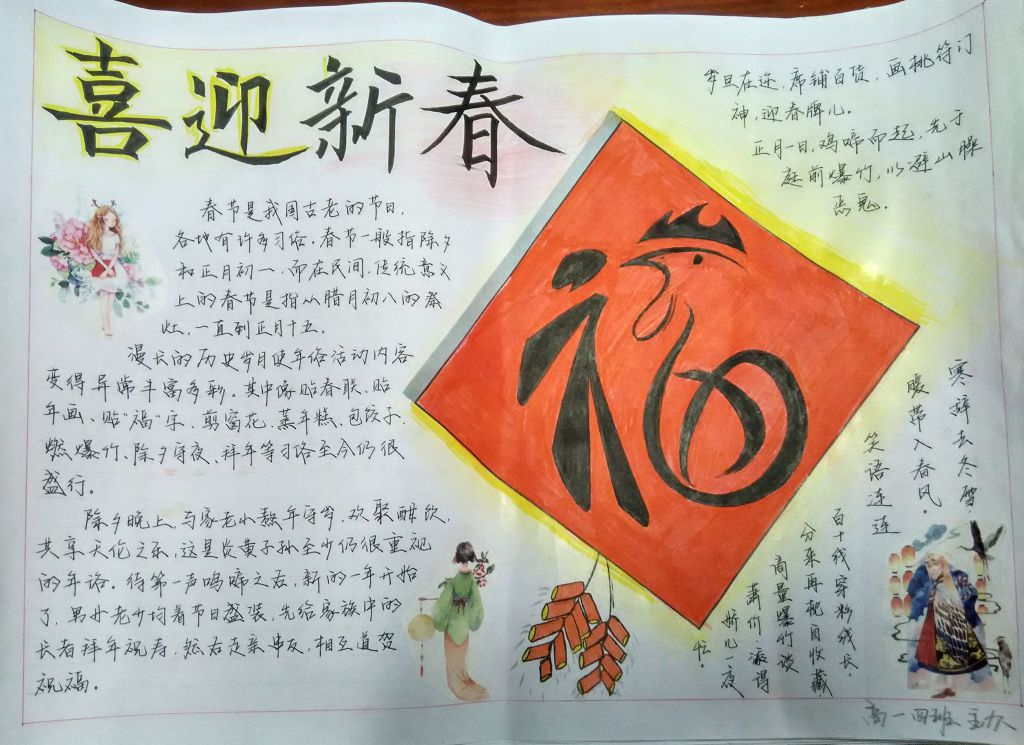 喜迎新春
春节是我国古老的节日,
各地有许多习俗,春节一般指除夕
和正月初一,而在民间,传统意义
上的春节是指从腊月初八的祭
灶,一直到正月十五。
漫长的历史岁月使年俗活动内容
变得异常丰富多彩。其中像贴春联、贴
年画、贴“福”字、剪窗花、蒸年糕、包饺子、
燃爆竹、除夕守夜、拜年等习俗至今仍很
盛行。
除夕晚上,与家老小熬年守岁,欢聚酣饮,
共享天伦之乐,这是炎黄子孙至少仍很重视
的年俗。待第一声鸡啼之后,新的一年开始
了,男女老少均着节日盛装,先给家族中的
长者拜年祝寿,然后走亲串友,相互道贺
祝福。
岁旦在迩,席铺百货,画桃符门
神,迎春牌儿。
正月一日,鸡啼而起,先于
庭前爆竹,以避山臊
恶鬼。
福
寒辞去冬雪,
暖带入春风。
笑语连连
百十钱穿彩线长,
分来再枕自收藏
商量爆竹谈
箫价
添得
娇儿一夜
忙。
高一四班